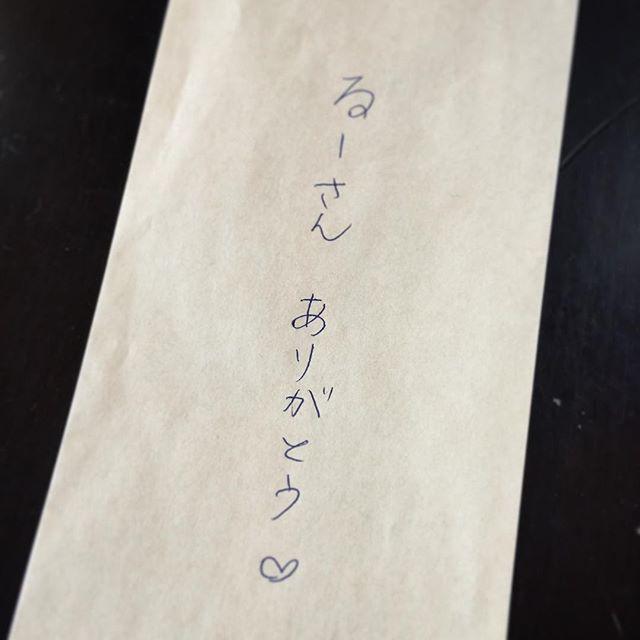 るーさん ありがとう♡